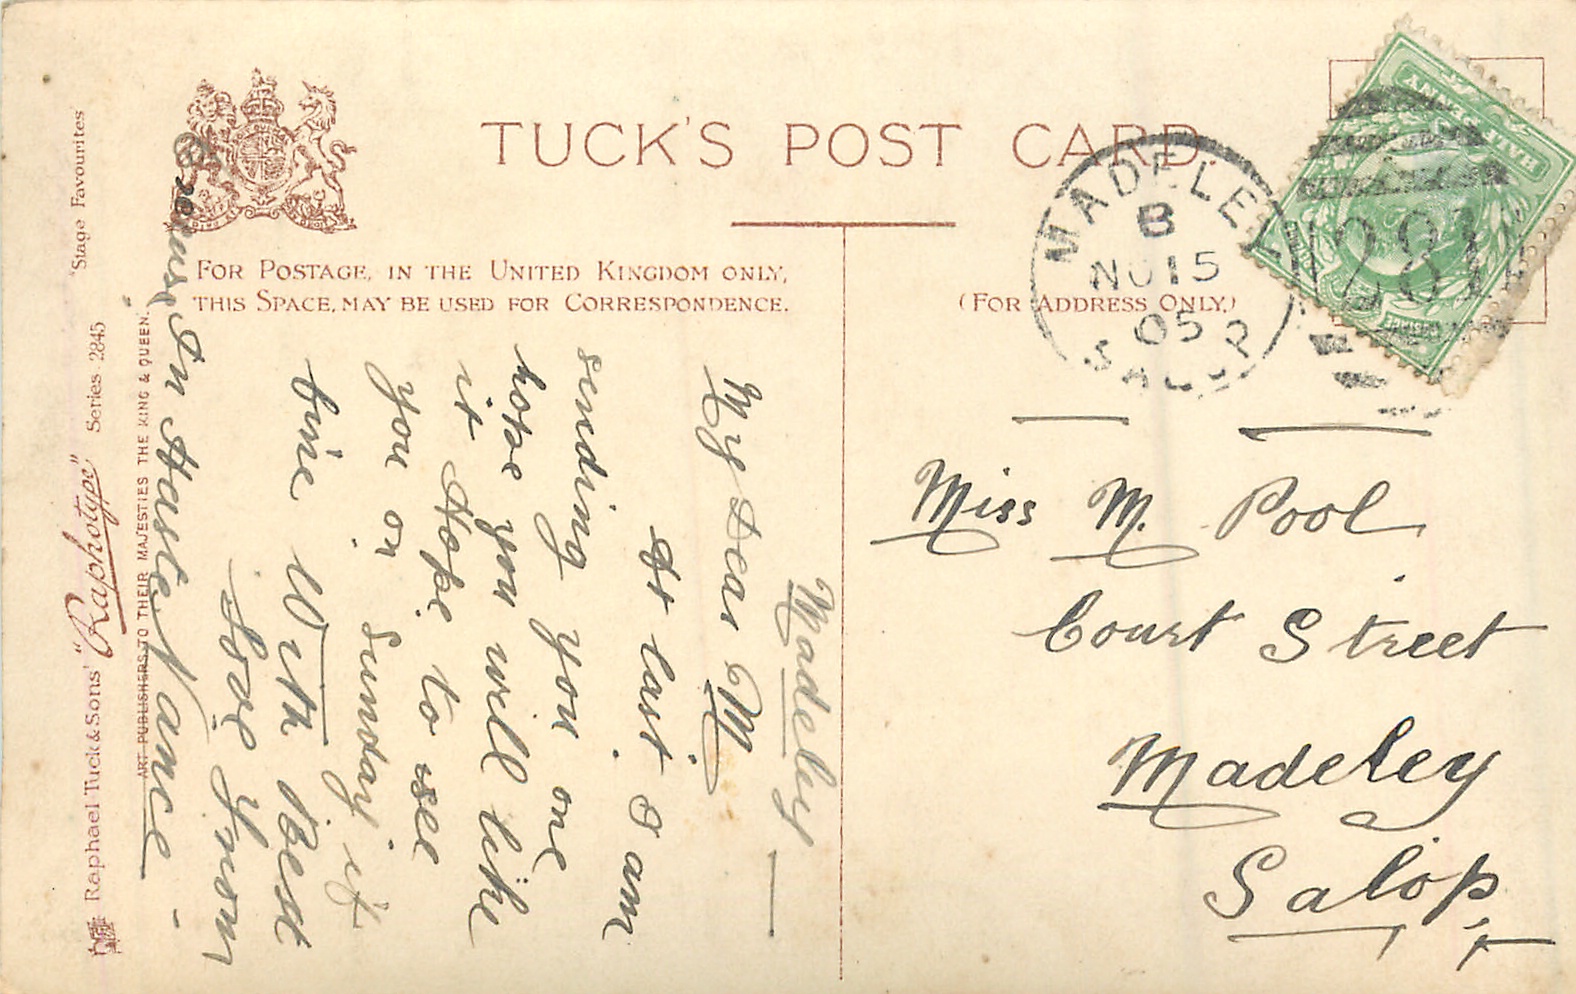 TUCK'S POST CARD
FOR POSTAGE, IN THE UNITED KINGDOM ONLY,
THIS SPACE, MAY BE USED FOR CORRESPONDENCE.
(FOR ADDRESS ONLY.)
MADELEY
B
NO 15
05
SALOP
HALF PENNY
POSTAGE
281
Miss M. Pool
Court Street
Madeley
Salop
Madeley
My Dear M.
At last I am
sending you one
hope you will like
it Hope to see
you on Sunday if
fine With Best
Love
In Haste Nance
"Stage Favourites"
Raphael Tuck & Sons' "Raphotype" Series 2845
ART PUBLISHERS TO THEIR MAJESTIES THE KING & QUEEN.